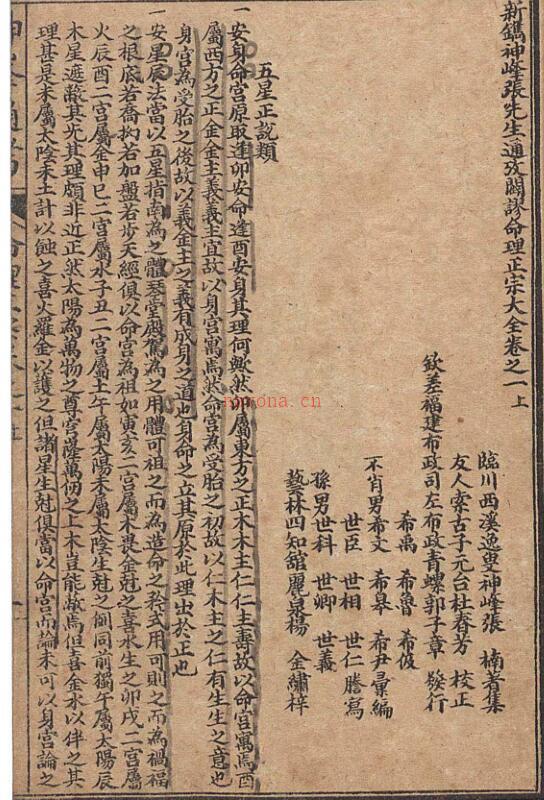 新鐫神峰張先生通攷闢謬命理正宗大全卷之一上
臨川西溪逸叟神峰張 楠著集
友人索古子元台杜春芳 校正
欽差福建布政司左布政青螺郭子章 發行
希禹 希魯 希伋
不肖男希文 希皋 希尹彙編
世臣 世相 世仁謄寫
孫男世科 世卿 世義
藝林四知舘麗泉楊 金繡梓
五星正說類
一安身命宮原取逢卯安命逢酉安身其理何歟然卯屬東方之正木木主仁仁主壽故以命宮寓焉酉
屬西方之正金金主義義主宜故以身宮寓焉然命宮為受胎之初故以仁木主之仁有生生之意也
身宮為受胎之後故以義金主之義有成身之道也身命之立其原於此理出於正也
一安星辰法當以五星指南為之體琴堂殿駕為之用體可祖之而為造命之矜式用可則之而為禍福
之根底若喬拘若加盤若步天經俱以命宮為祖如寅亥二宮屬木畏金尅之喜水生之卯戌二宮屬
火辰酉二宮屬金申巳二宮屬水子丑二宮屬土午屬太陽未屬太陰生尅之例同前獨午屬太陽辰
木星遮蔽其光其理頗非近正然太陽為萬物之尊宮陞萬仞之上木豈能蔽焉但喜金水以伴之其
理甚是未屬太陰未土計以蝕之喜火羅金以護之但諸星生尅俱當以命宮而論未可以身宮論之
nrrona.cn